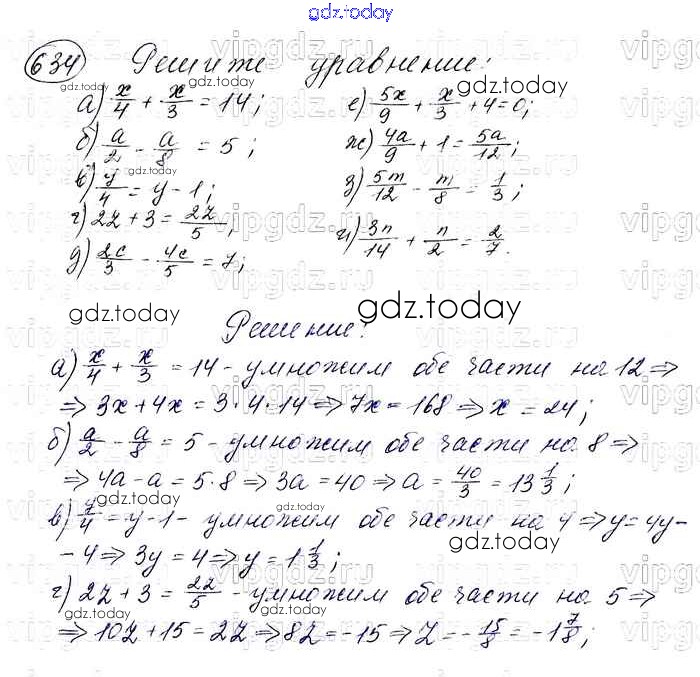 gdz.today
634 Решите уравнение:
а) x/4 + x/3 = 14;
б) a/2 - a/8 = 5;
в) y/4 = y - 1;
г) 2z + 3 = 2z/5;
д) 2c/3 - 4c/5 = 7;
е) 5x/9 + x/3 + 4 = 0;
ж) 4a/9 + 1 = 5a/12;
з) 5m/12 - m/8 = 1/3;
и) 3n/14 + n/2 = 2/7.
Решение:
а) x/4 + x/3 = 14 - умножим обе части на 12 ⇒
⇒ 3x + 4x = 3·4·14 ⇒ 7x = 168 ⇒ x = 24;
б) a/2 - a/8 = 5 - умножим обе части на 8 ⇒
⇒ 4a - a = 5·8 ⇒ 3a = 40 ⇒ a = 40/3 = 13 1/3;
в) y/4 = y - 1 - умножим обе части на 4 ⇒ y = 4y -
- 4 ⇒ 3y = 4 ⇒ y = 1 1/3;
г) 2z + 3 = 2z/5 - умножим обе части на 5 ⇒
⇒ 10z + 15 = 2z ⇒ 8z = -15 ⇒ z = - 15/8 = -1 7/8;